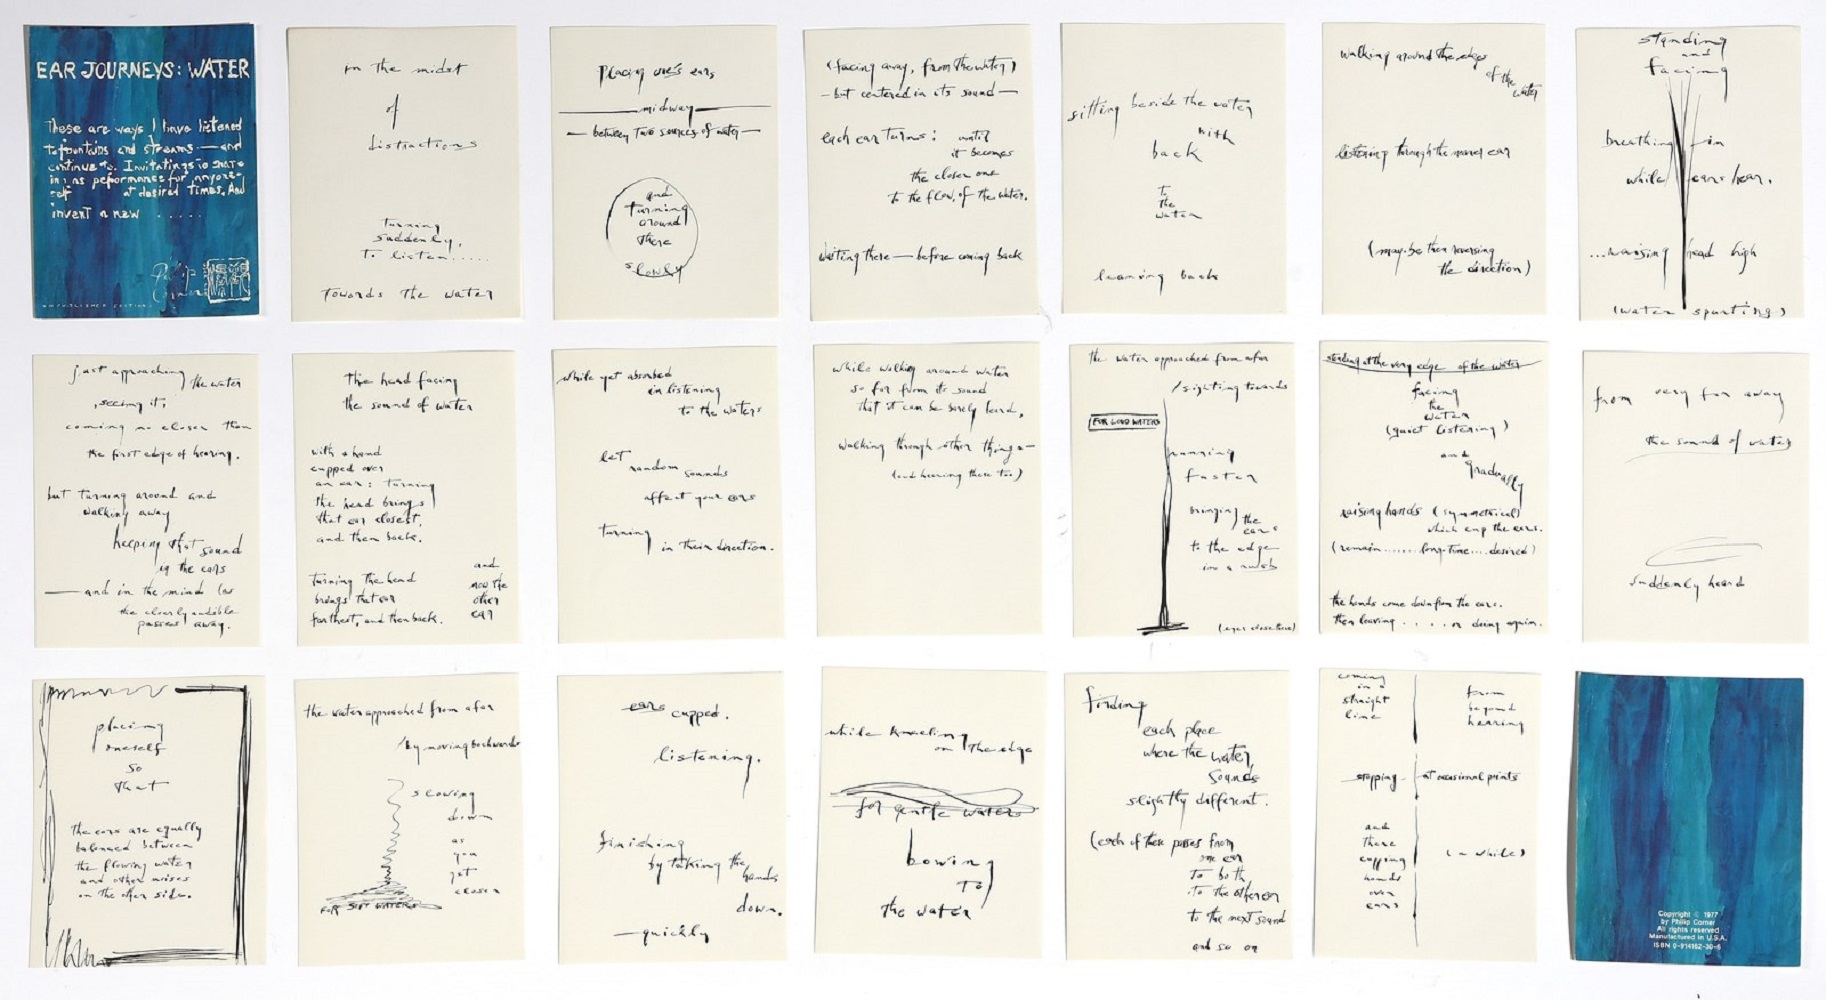 EAR JOURNEYS: WATER
These are ways I have listened
to fountains and streams — and
continue to. Invitations to share
in: as performance for anyone
at desired times. And
invent a new . . . . .
Philip
Corner
in the midst
of
distractions
turning
suddenly,
to listen.....
towards the water
placing one's ears
midway
— between two sources of water —
and
turning
around
there
slowly
(facing away, from the water)
— but centered in its sound —
each ear turns: until
it becomes
the closer one
to the flow, of the water.
waiting there — before coming back
sitting beside the water
with
back
to
the
water
leaning back
walking around the edge
of the
water
listening through the nearer ear
(may-be then reversing
the direction)
standing
and
facing
breathing in
while ears hear.
...raising head high
(water spurting)
just approaching the water
, seeing it,
coming no closer than
the first edge of hearing.
but turning around and
walking away
keeping that sound
in the ears
— and in the mind (as
the clearly audible
passes) away.
the head facing
the sound of water
with a hand
cupped over
an ear: turning
the head brings
that ear closest,
and then back.
turning the head
brings that ear
farthest, and then back.
and
now the
other
ear
while yet absorbed
in listening
to the waters
let
random sounds
affect your ears
turning
in their direction.
while walking around water
so far from its sound
that it can be barely heard,
walking through other things —
(and hearing these too)
the water approached from afar
/sighting towards
FOR LOUD WATERS
running
faster
bringing the
ears
to the edge
in a rush
(eyes close there)
standing at the very edge of the water
facing
the
water
(quiet listening)
and
gradually
raising hands (symmetrical)
which cup the ears.
(remain.......long-time....desired)
the hands come down from the ears.
then leaving . . . . or doing again.
from very far away
the sound of water
suddenly heard
placing
oneself
so
that
the ears are equally
balanced between
the flowing water
and other noises
on the other side.
the water approached from afar
/by moving backwards
slowing
down
as
you
get
closer
FOR SOFT WATERS
ears cupped.
listening.
finishing
by taking the
hands
down.
— quickly
while kneeling
on the edge
for gentle waters
bowing
to
the water
finding
each place
where the water,
sounds
slightly different.
(each of these passes from
one ear
to both
to the other ear
to the next sound
and so on
coming
in a
straight
line
from
beyond
hearing
stopping - at occasional points
and
there
cupping
hands
over
ears
(a while)
Copyright © 1977
by Philip Corner
All rights reserved
Manufactured in U.S.A.
ISBN 0-914162-30-6